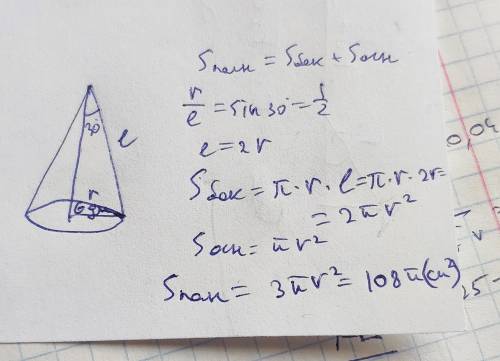 Sполн = Sбок + Sосн
r/l = sin 30 = 1/2
l = 2r
Sбок = π·r·l = π·r·2r =
= 2πr²
Sосн = πr²
Sполн = 3πr² = 108π(см²)
30
l
r
0,04
25